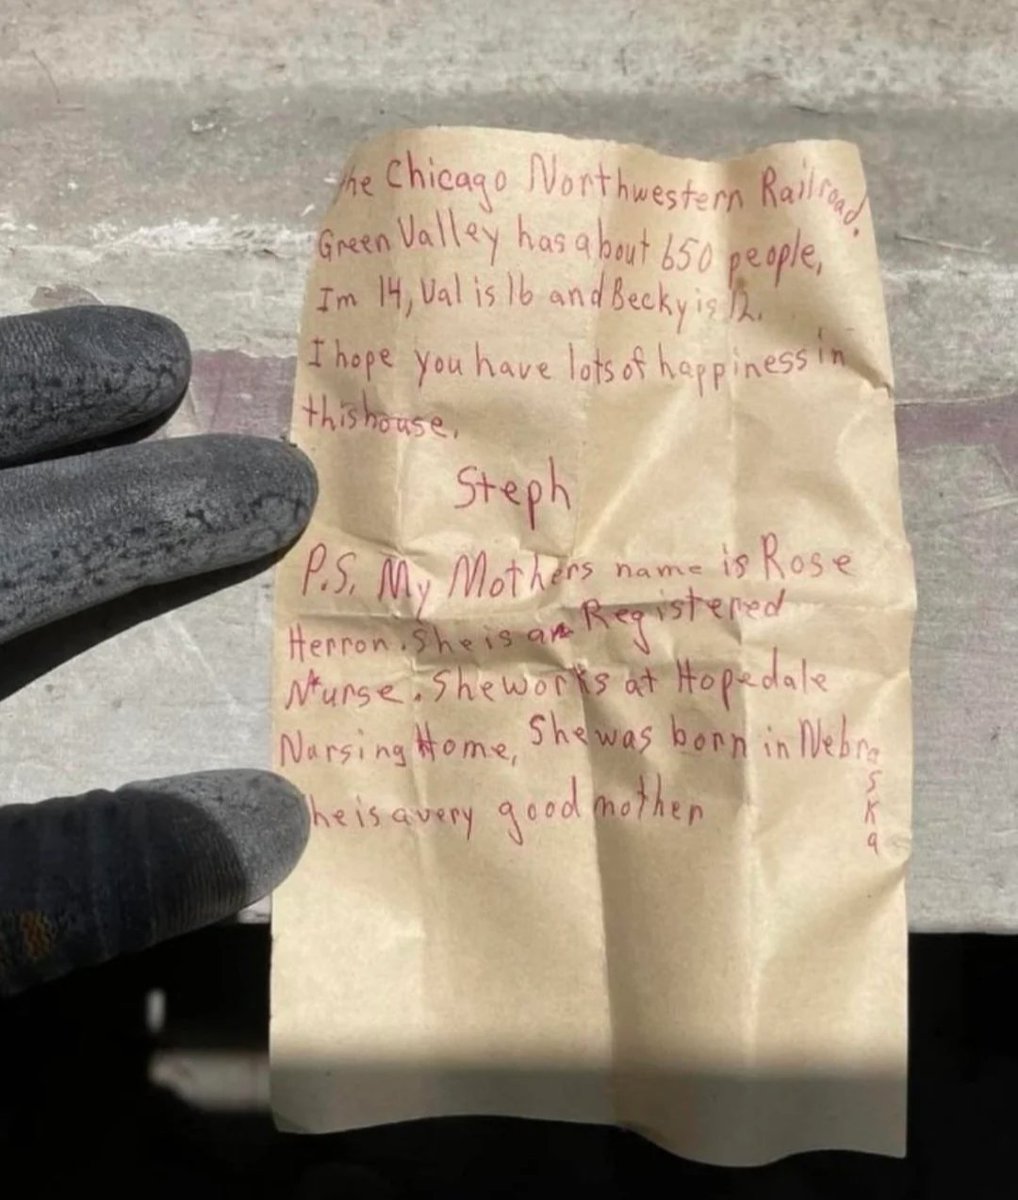 he Chicago Northwestern Railroad.
Green Valley has about 650 people,
Im 14, Val is 16 and Becky is 12.
I hope you have lots of happiness in
this house.
Steph
P.S. My Mothers name is Rose
Herron. She is a Registered
Nurse. She works at Hopedale
Nursing Home, She was born in Nebraska
he is a very good mother